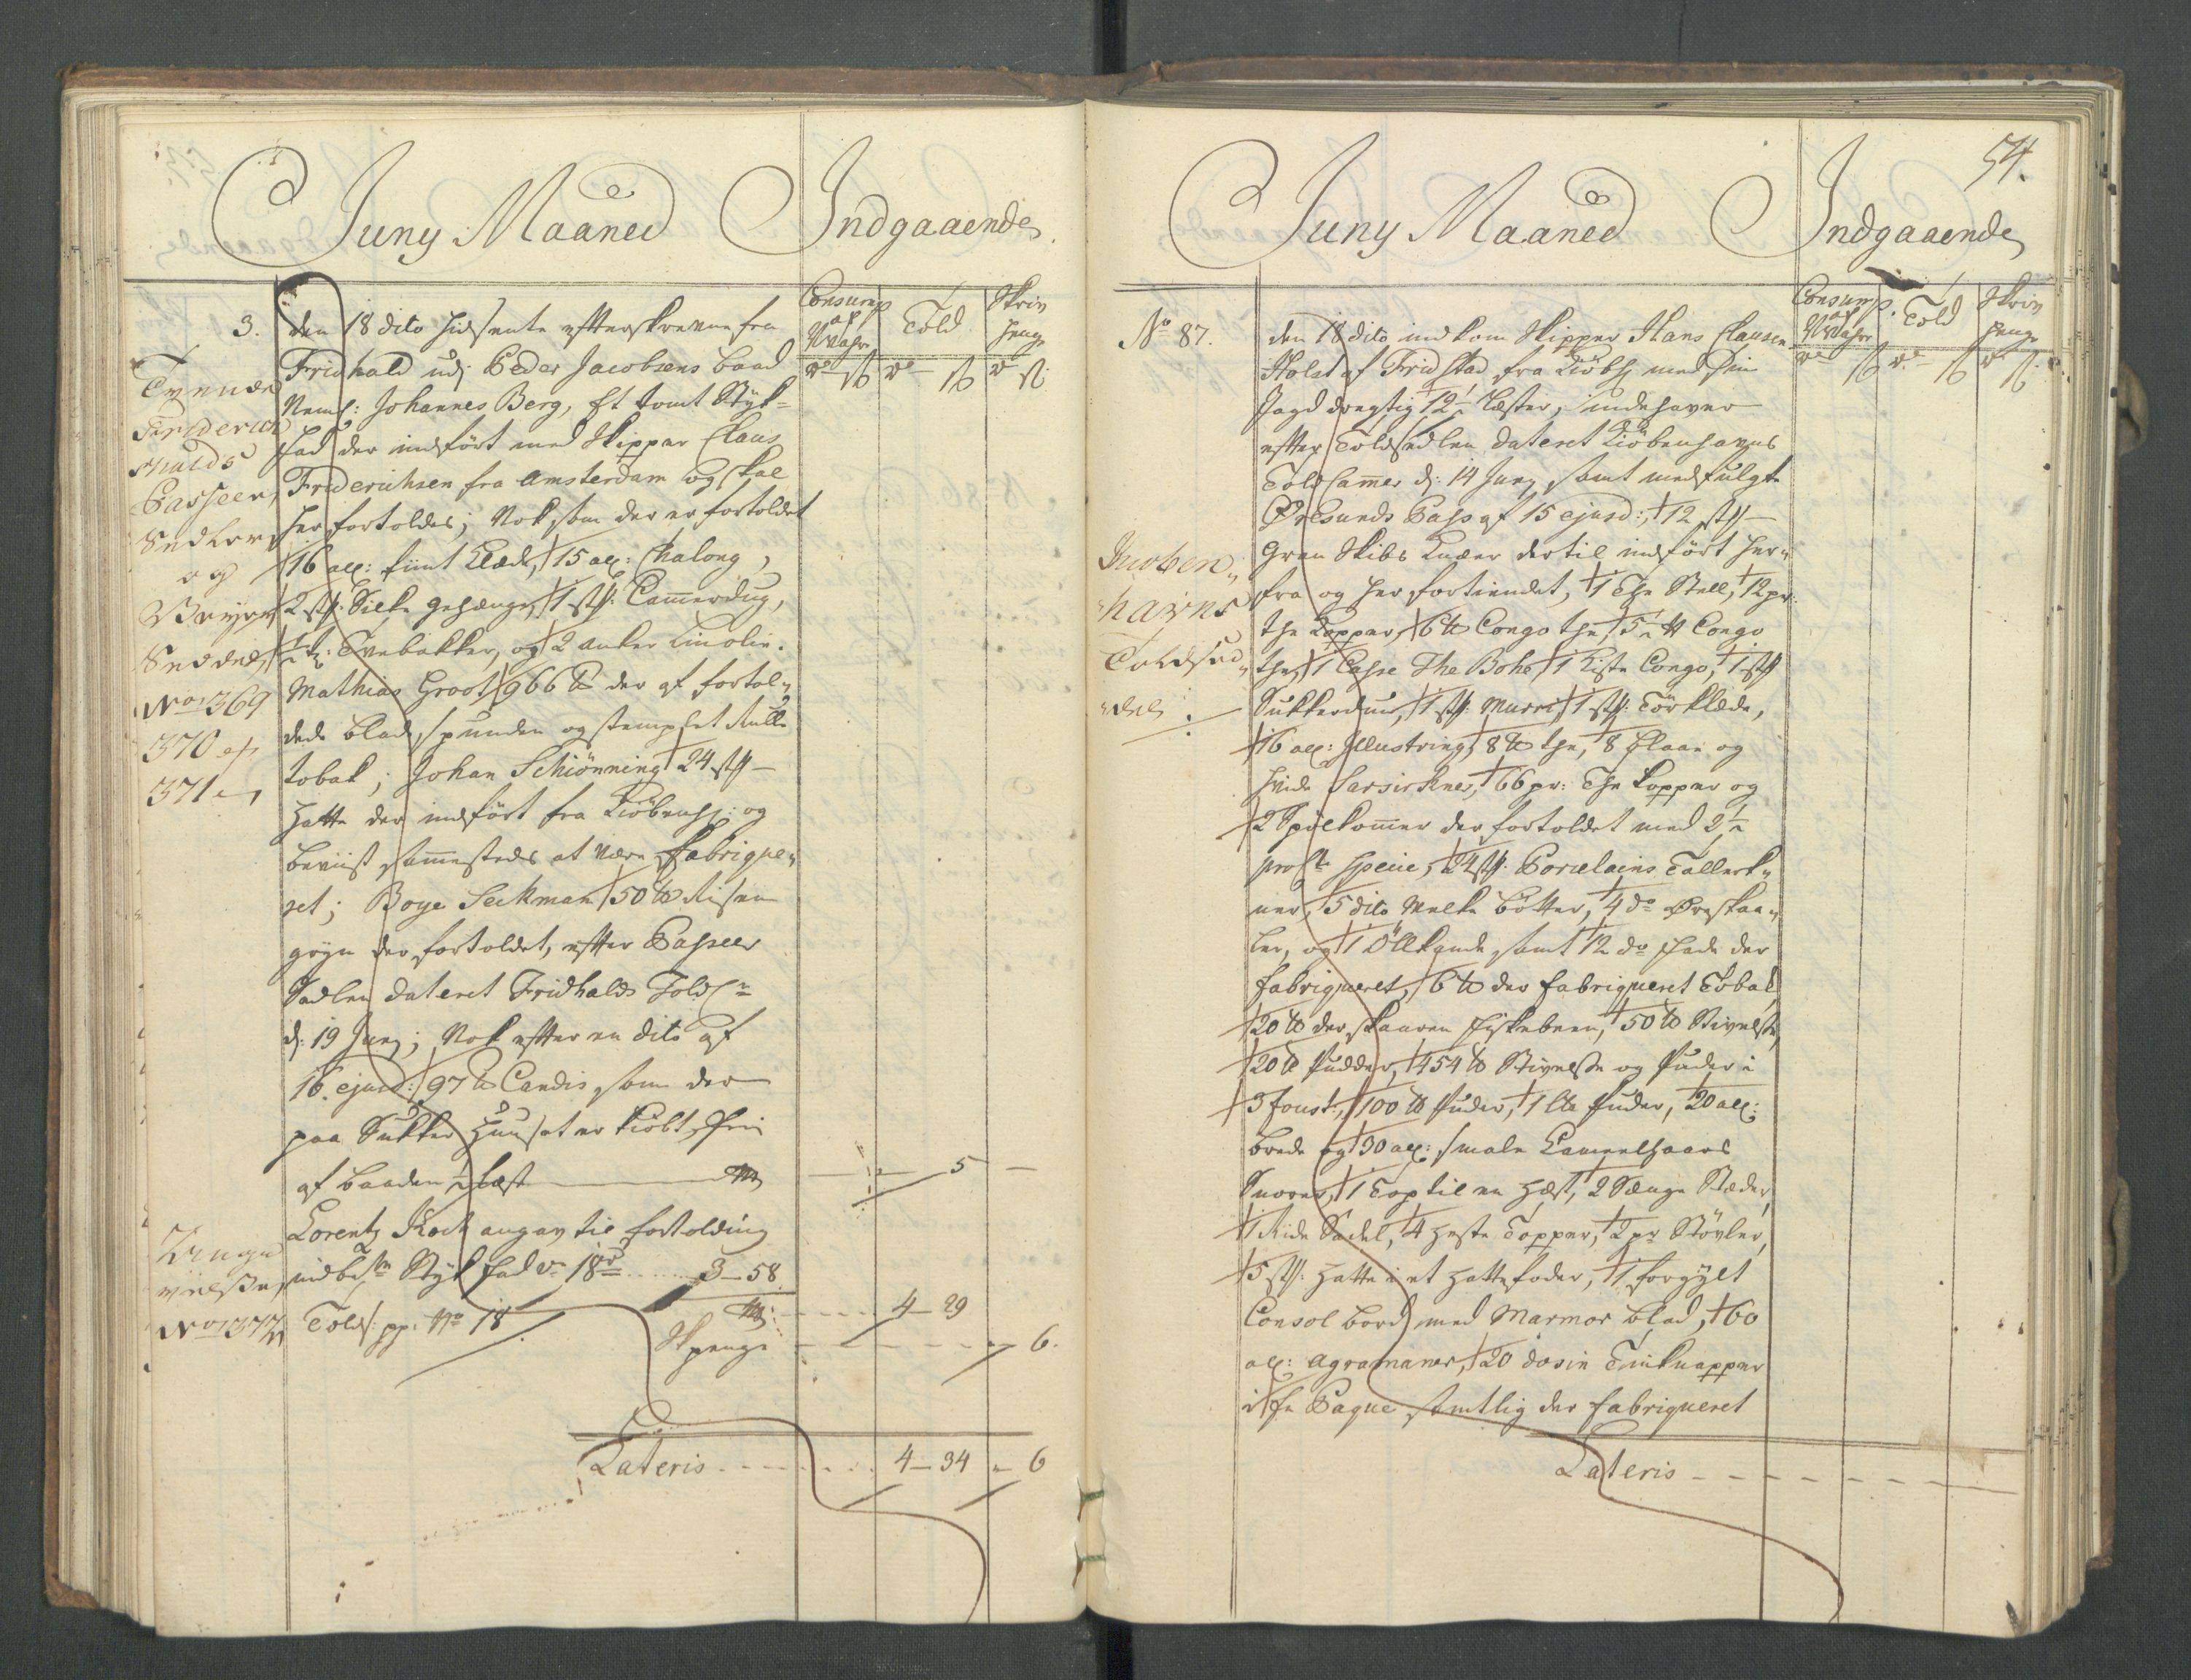 Juny Maaned Indgaaende
Consump
af
Wahr
Told
Skriv
penge
3. den 18 dito hidsente efterskrevne fra
Fridhald udj Peder Jacobsens baad
Neml: Johannes Berg, Et tomt Styk-
fad der indført med Skipper Claus
Friderichsen fra Amsterdam og skal
her fortoldes; Nok som der er fortoldet
16 all: fiint Klæde, 15 all: Chalong,
2 stk: Silke gehænge, 1 stk: Camerdug,
Tvebakker, og 2 anker Linolie.
Mathias Groot 966 lb der af fortol-
dede blade spunden og stemplet Rulle
tobak; Johan Schiönning 24 stk
Hatte der indført fra Kiöbenh: og
beviist sammesteds at være fabrique-
ret; Boye Seekman 50 lb Risen
gryn der fortoldet, efter Passeer
Sedlen dateret Fridhalds Told
d: 19 Juny; Nok efter en dito af
16. ejusd: 97 lb Candis som der
paa Sukker Huuset er kiöbt, frie
af baaden ½ Læst 5
Lorentz Koch angav til fortolding
Styk fad 18 3-58
Told: pp: No 18 4-29
Skpenge 6.
Lateris 4-34 6
Tvende
Friderich
shalds
Passeer
Sedler
og
Sedel
No 369
370 og
371
Angi
velse
No 372
54.
Juny Maaned Indgaaende
Consump.
af
Wahr
Told
Skriv
penge
No 87. den 18 dito indkom Skipper Hans Clausen
Holst af Fridstad fra Kiöbh: med sin
Jagd drægtig 12½ Læster, indehaver
efter Toldsedlen dateret Kiöbenhavns
Told Camer d: 14 Juny samt medfulgte
Øresunds Pass af 15 ejusd:, 12 stk
Gran Skibs Knæer dertil indført her-
fra og her fortiendet, 1 The Stell, 12 pr:
the Kopper, 6 lb Congo the, 5½ lb Congo
the, 1 Casse The Bohe, 1 Kiste Congo, 1 stk
Sukkerduus, 1 stk: Murri, 1 stk: Törklæde,
16 all: Illustring, 8 lb the, 8 blaae og
hvide Sarsirknes, 66 pr: The kopper og
2 Spölkommer der fortoldet med 2½
24 stk: Porcelains Tallerk-
ner, 5 dito Melke bötter, 4 do Øreskaa-
ler, og 1 Öllkande samt 12 do fade der
fabriqueret, 6 lb der fabriqueret Tobak,
20 lb der skaaren fiskebeen, 50 lb Stivelse,
20 lb Pudder, 454 lb Stivelse og Puder i
3 foust:, 100 lb Puder, 1 lb Puder, 20 all:
brede og 30 all: smale Kameelhaars
Snorer, 1 Top til en Hest, 2 Senge Steder,
1 Ride Sadel, 4 Heste Topper, 2 pr Stövler,
5 stk: Hatte i et Hattefoder, 1 forgylt
Consol bord med Marmor blad, 60
all: Agramaner, 20 dosin Tinknapper
i En Paque samtlig der fabriqueret
Lateris
Kioben-
havns
Toldsed-
del